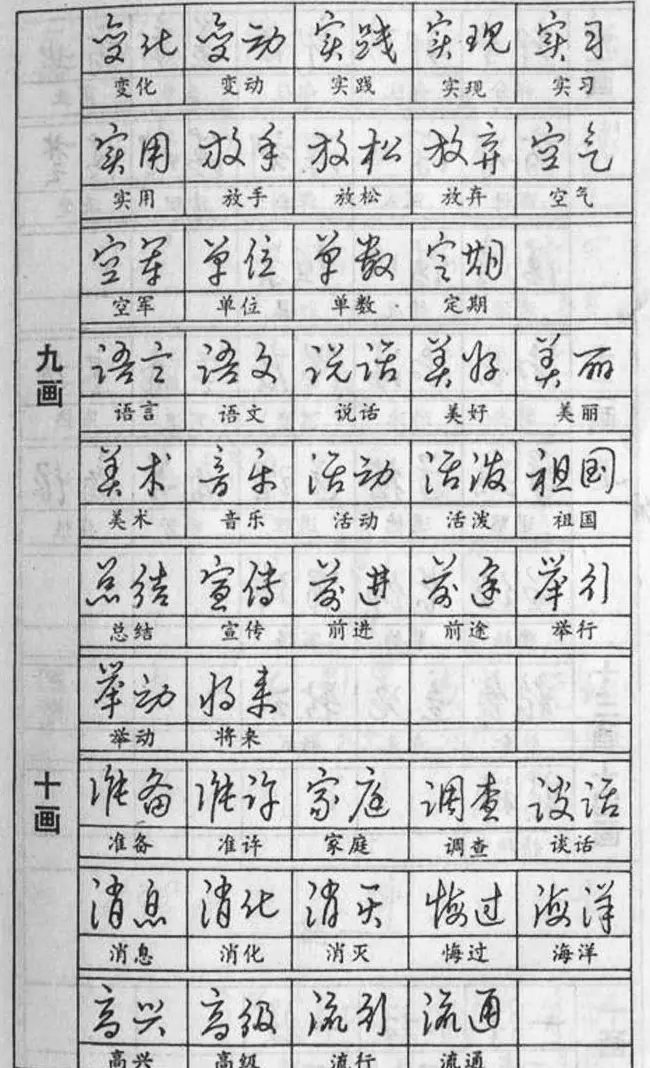 变化 变动 实践 实现 实习
变化 变动 实践 实现 实习
实用 放手 放松 放弃 空气
实用 放手 放松 放弃 空气
空军 单位 单数 定期
空军 单位 单数 定期
九画
语言 语文 说话 美好 美丽
语言 语文 说话 美好 美丽
美术 音乐 活动 活泼 祖国
美术 音乐 活动 活泼 祖国
总结 宣传 前进 前途 举行
总结 宣传 前进 前途 举行
举动 将来
举动 将来
十画
准备 准许 家庭 调查 谈话
准备 准许 家庭 调查 谈话
消息 消化 消灭 悔过 海洋
消息 消化 消灭 悔过 海洋
高兴 高级 流行 流通
高兴 高级 流行 流通